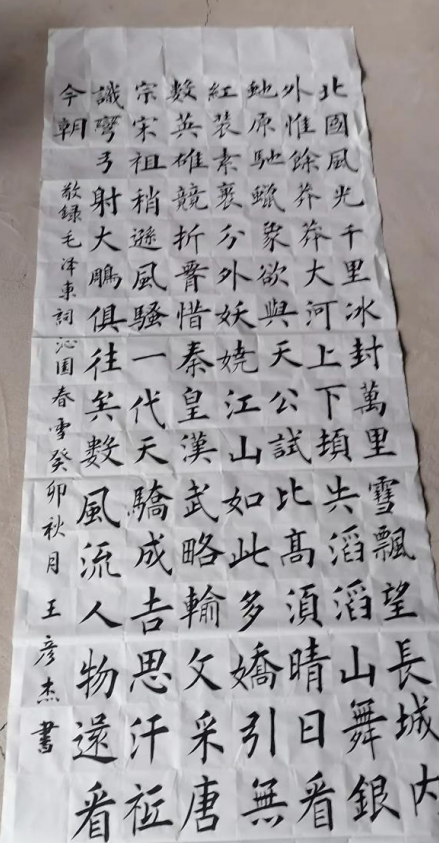 北國風光千里冰封萬里雪飄望長城内
外惟餘莽莽大河上下頓失滔滔山舞銀
虵原馳蠟象欲與天公試比高須晴日看
紅裝素裹分外妖嬈江山如此多嬌引無
数英雄競折腰惜秦皇漢武略輸文采唐
宗宋祖稍遜風騷一代天驕成吉思汗祗
識彎弓射大鵰俱往矣數風流人物還看
今朝
敬録毛泽東詞沁园春雪癸卯秋月王彦杰書